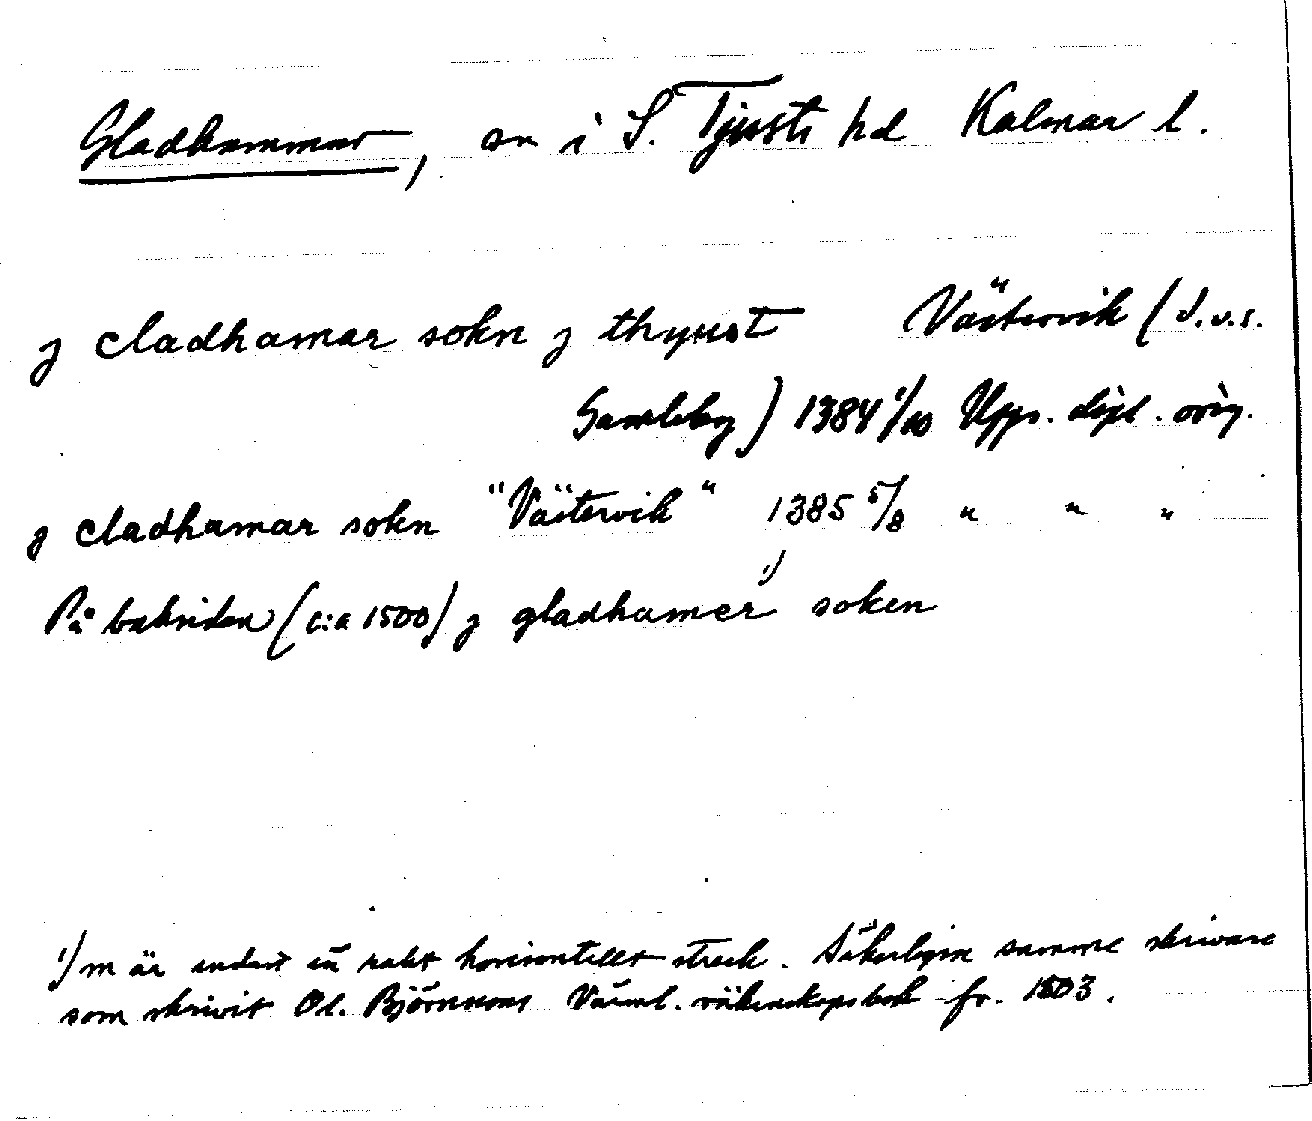 Gladhammar, sn i S. Tjusts hd Kalmar l.
j cladhamar sokn j thyust Västervik (d.v.s.
Gamleby) 1384 1/10 Upps. dipl. orig.
j cladhamar sokn "Västervik" 1385 5/8 " " "
På baksidan (c:a 1500) j gladhamer 1) soken
1) m är endast ett rakt horisontellt streck. Säkerligen samme skrivare
som skrivit Ol. Björnssons Värml. räkenskapsbok fr. 1503.